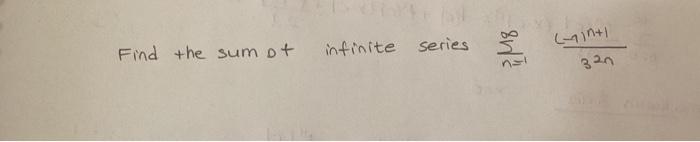 Find the sum of infinite series ∞ Σ n=1 (-1)^{n+1} / 3^{2n}